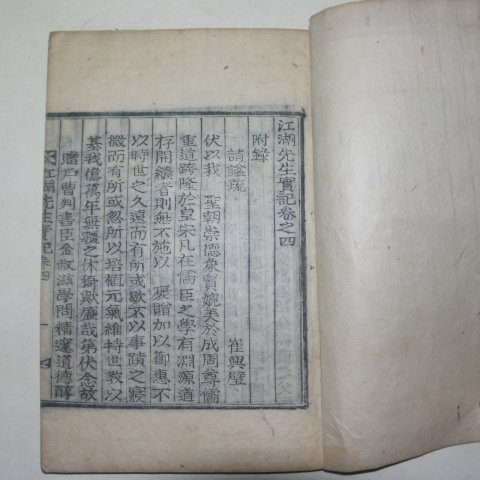 江湖先生實記卷之四
附錄
請諡疏 崔興璧
伏以我 聖朝崇德象賢媲美於成周尊儒
重道跨隆於皇宋凡在儒臣之學有淵源道
存開繼者則無不施以 褒贈加以 惠不
以時世之久遠而有所或歇不以事蹟之寢
微而有所或忽所以培植元氣維持世敎以
基我億萬年無疆之休猗歟盛哉第伏念故
贈戶曹判書臣金叔滋學問精邃道德醇
江湖先生實記卷四 一